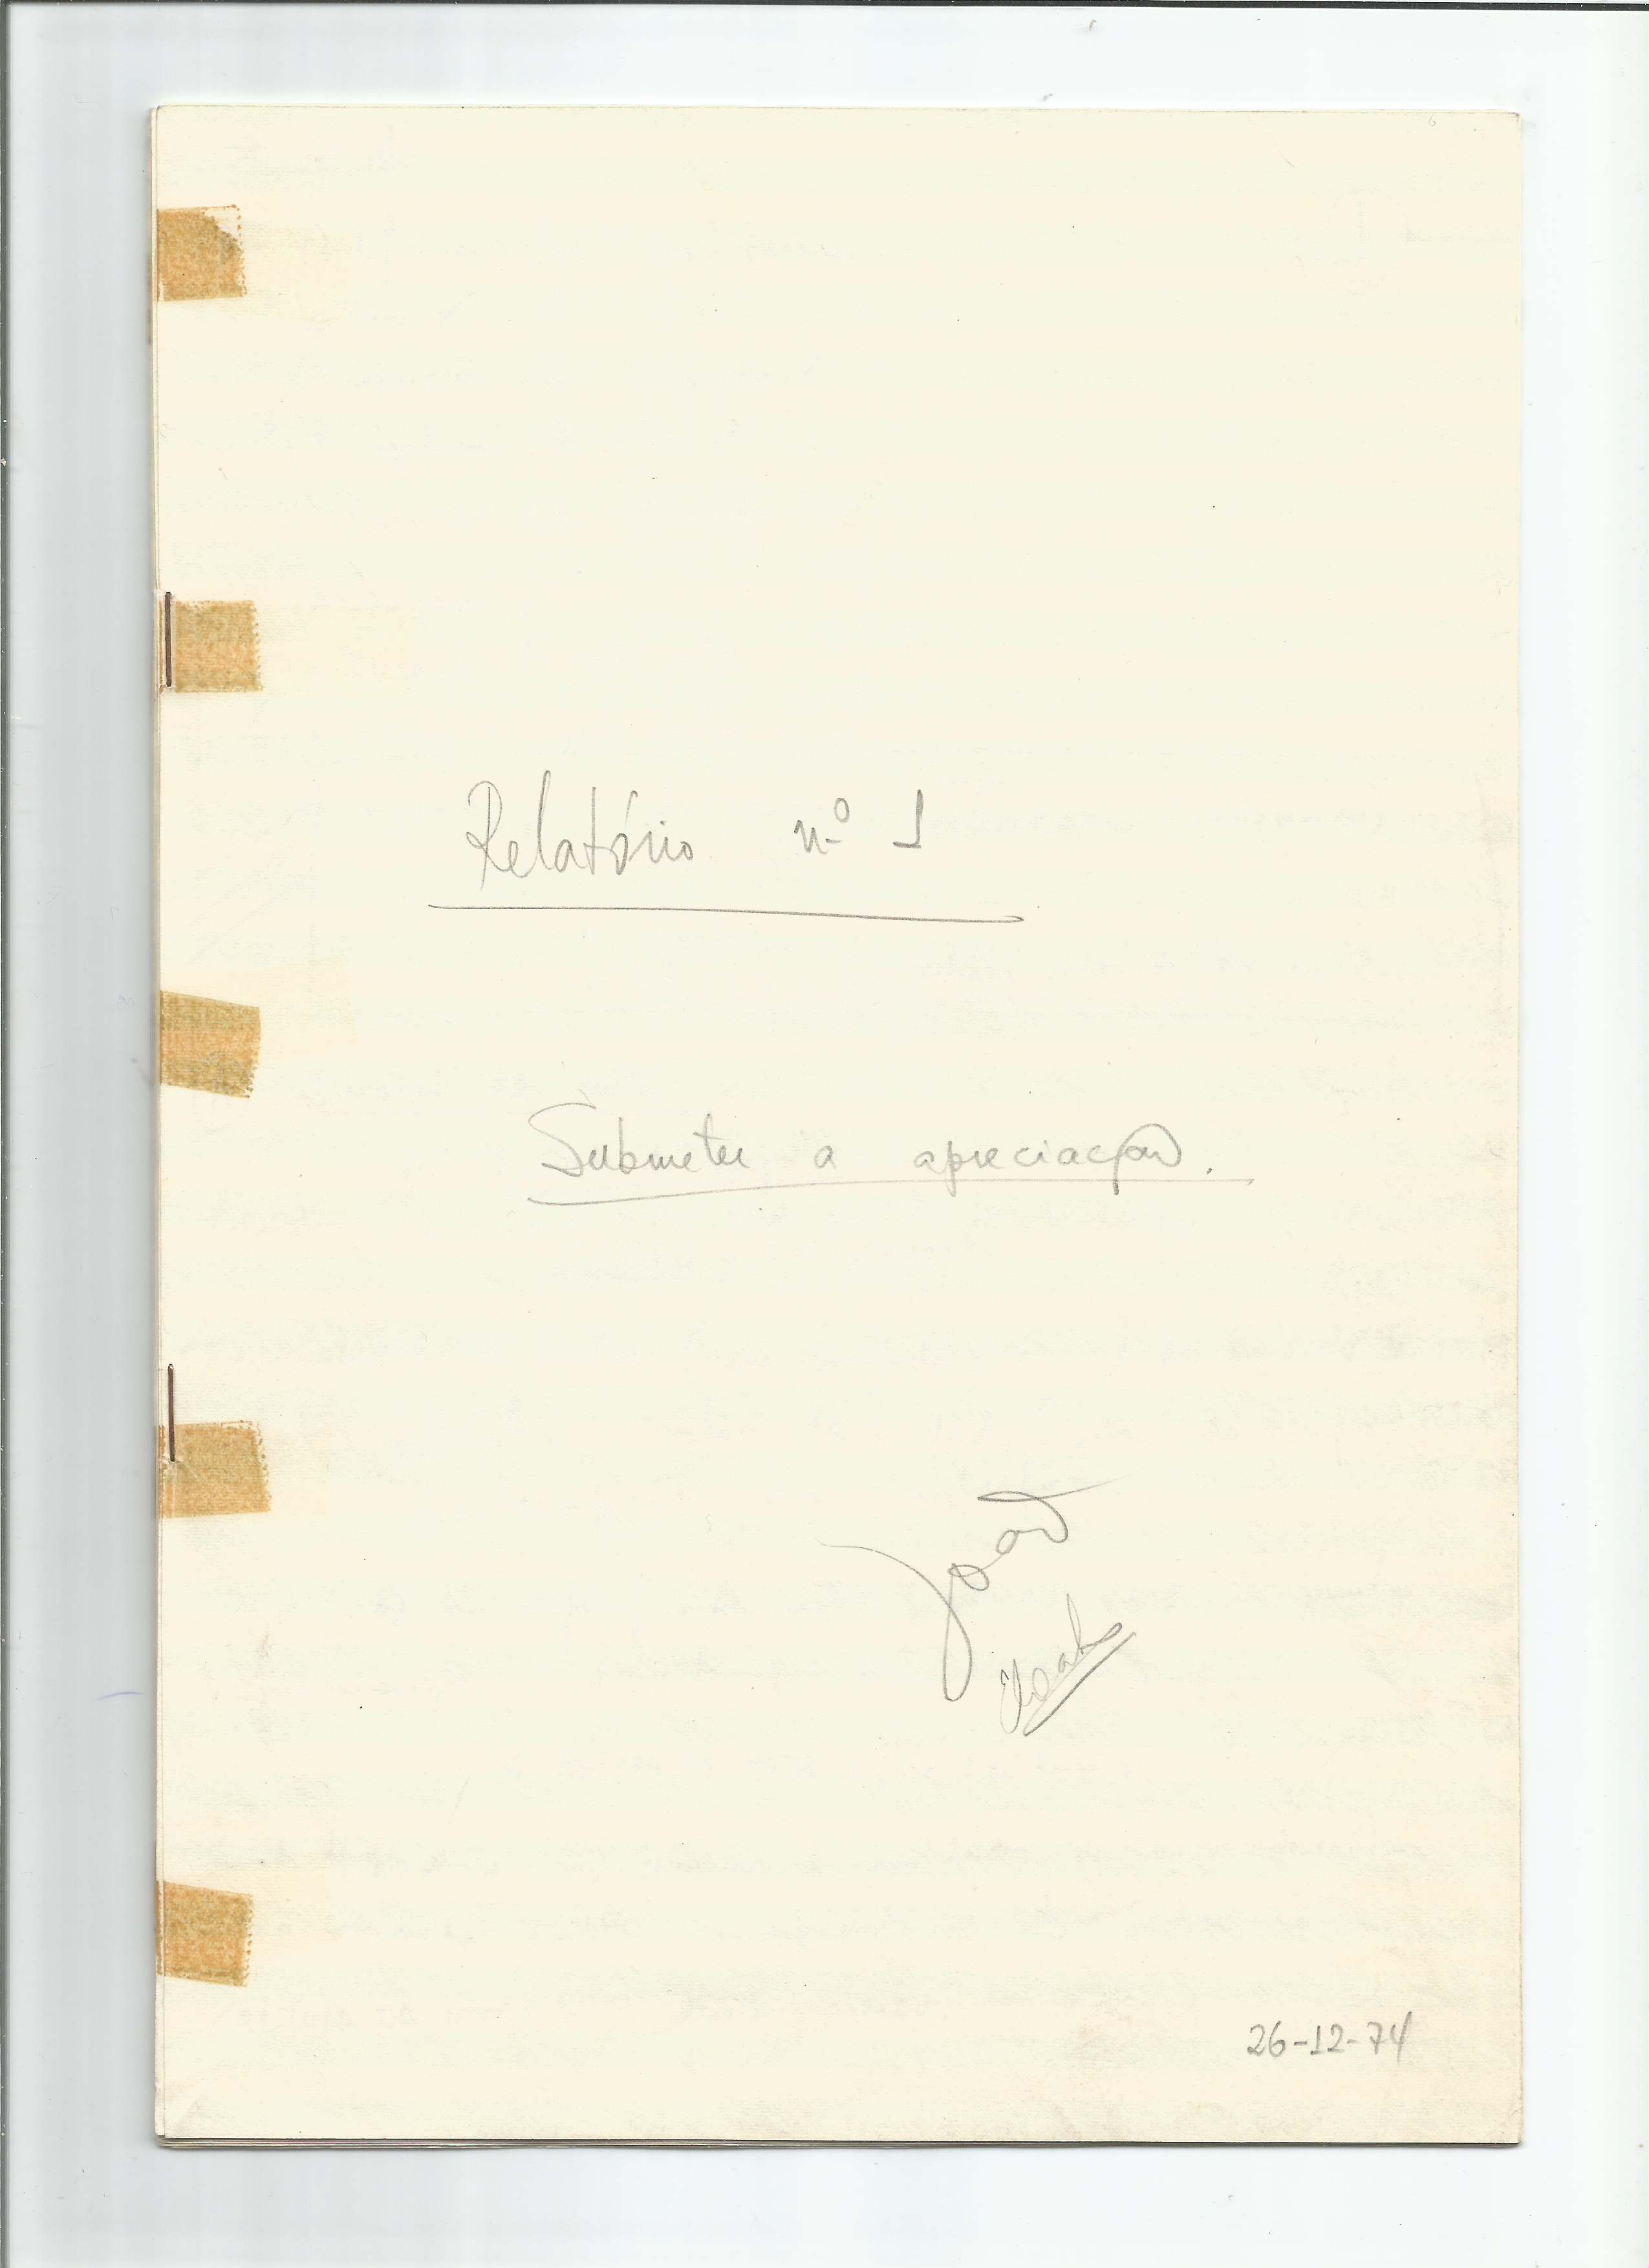 Relatório n.º 1
Submeter a apreciação.
João
26-12-74